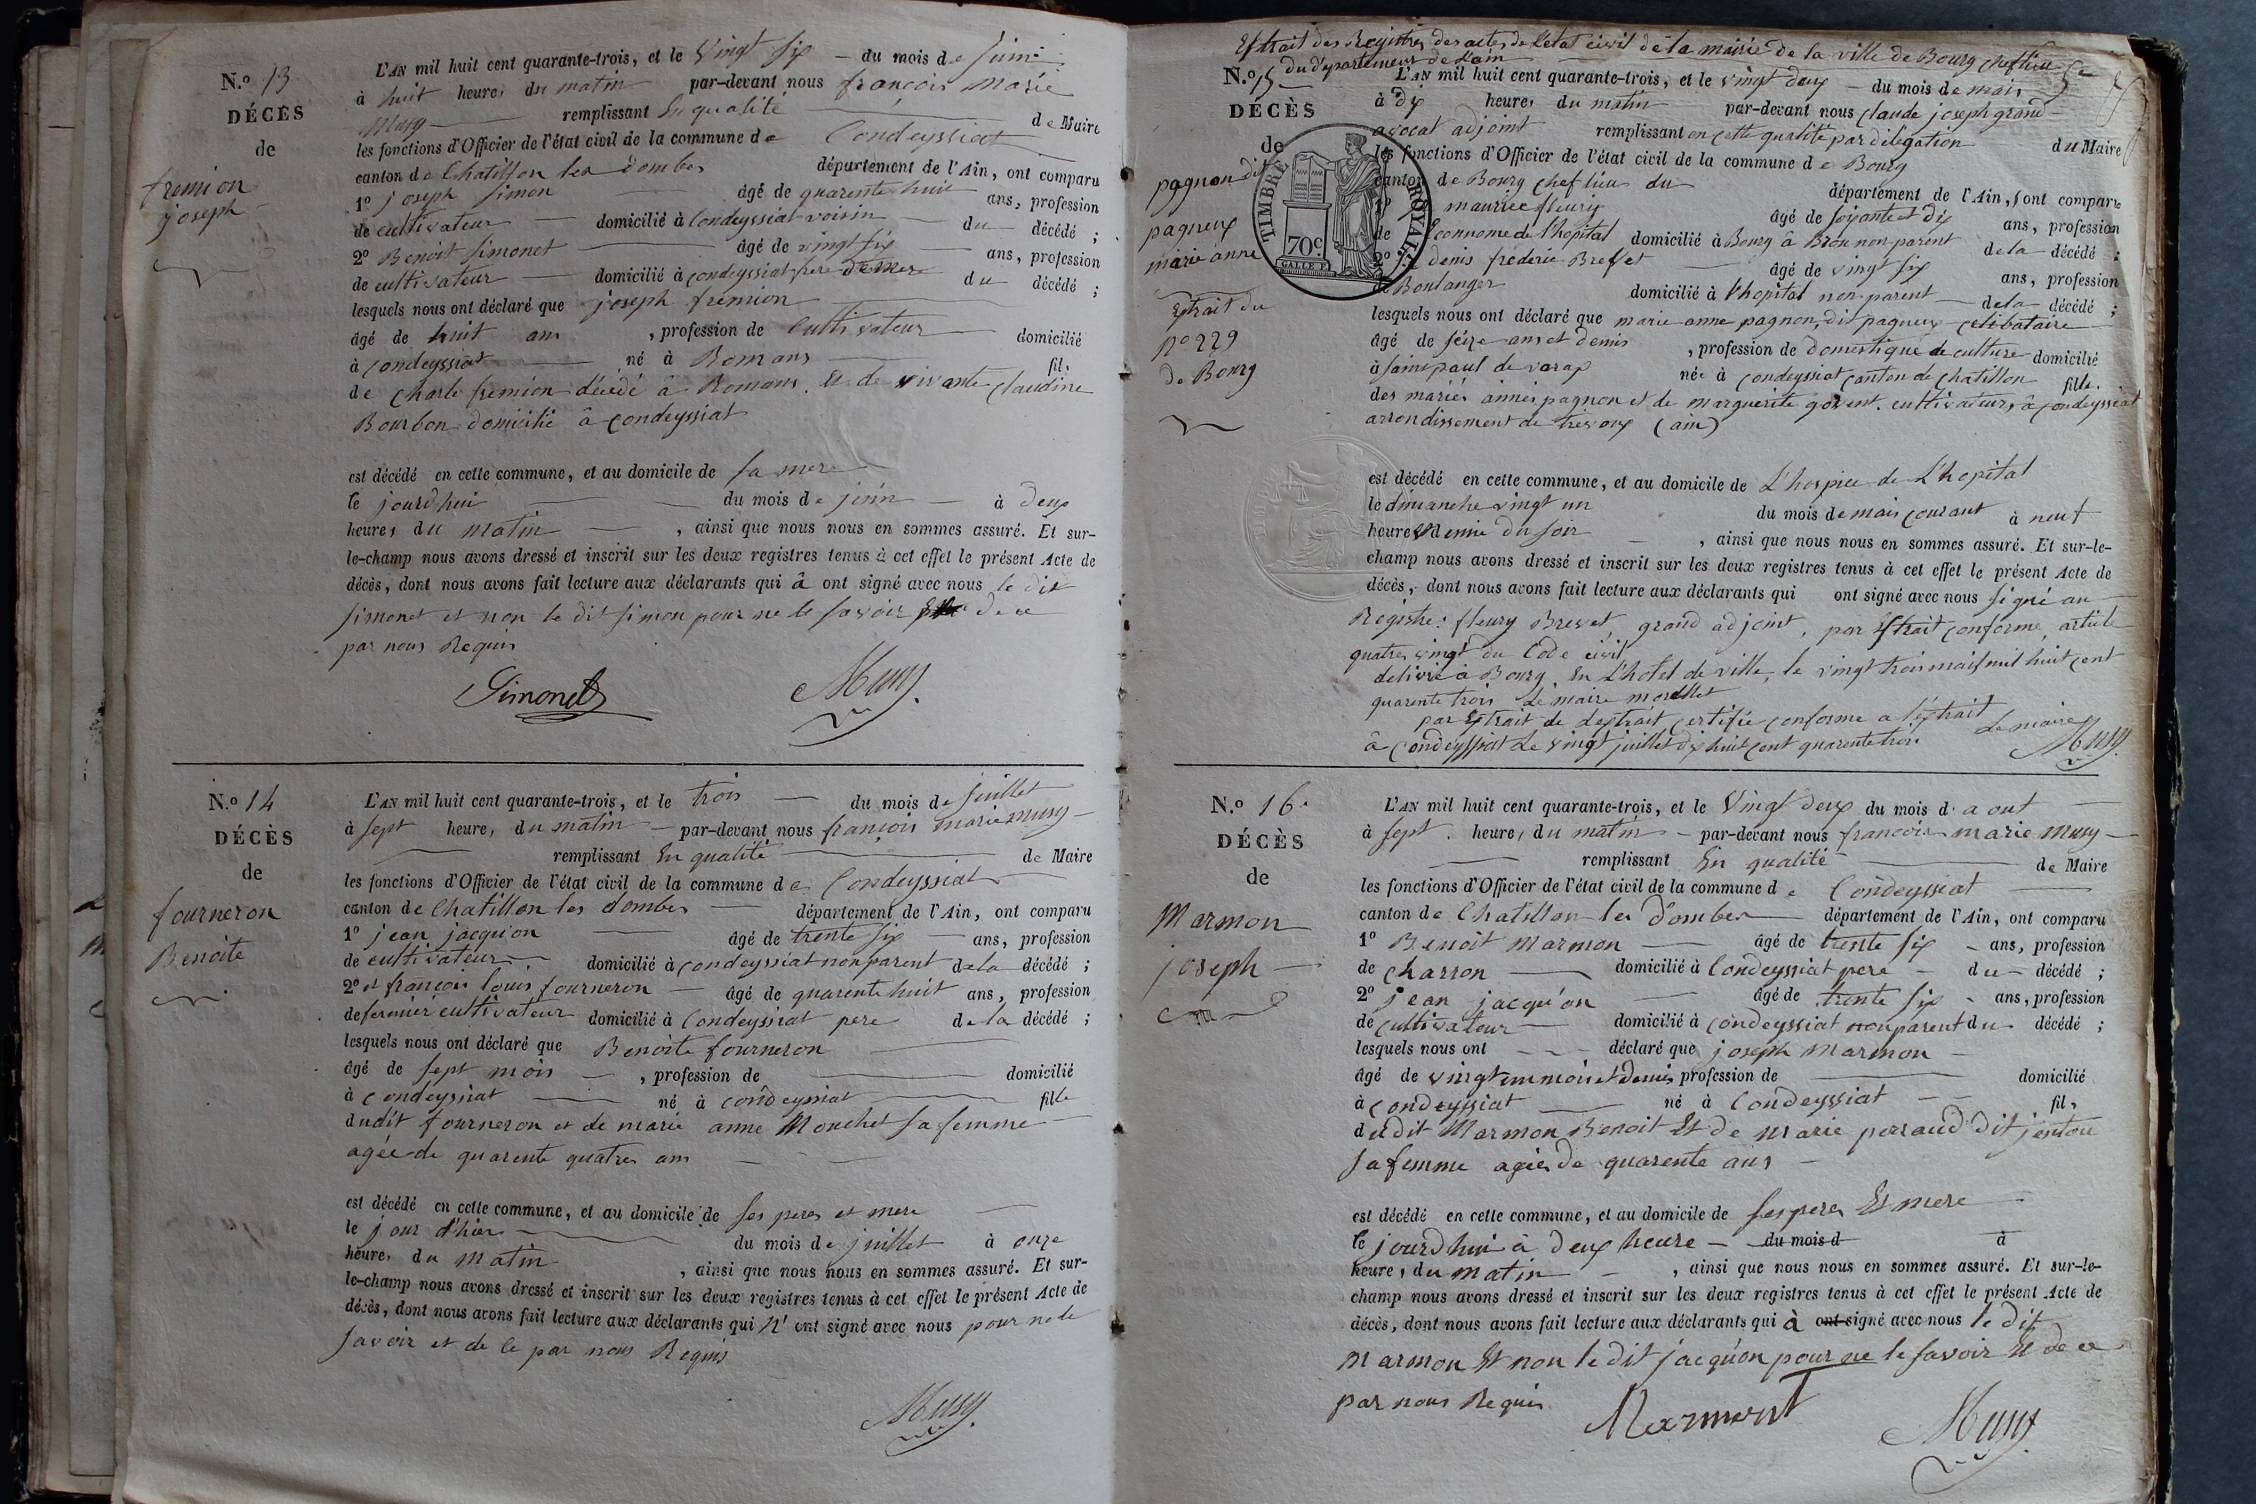 N.o 13
DÉCÈS
de
fremion
joseph
L'AN mil huit cent quarante-trois, et le Vingt six du mois de juin
à huit heures du matin par-devant nous françois Marie
Musy remplissant En qualité de Maire
les fonctions d'Officier de l'état civil de la commune de Condeyssiat
canton de Chatillon les dombes département de l'Ain, ont comparu
1o joseph Simon âgé de quarente huit ans, profession
de cultivateur domicilié à Condeyssiat voisin du décédé ;
2o Benoit Simonet âgé de vingt six ans, profession
de cultivateur domicilié à condeyssiat frere de mere du décédé ;
lesquels nous ont déclaré que joseph fremion
âgé de huit ans , profession de Cultivateur domicilié
à condeyssiat né à Romans fils
de charle fremion décédé à Romans. Et de vivante claudine
Bourbon domicilié â Condeyssiat
est décédé en cette commune, et au domicile de sa mere
le jourd'hui du mois de juin à deux
heures du matin , ainsi que nous nous en sommes assuré. Et sur-
le-champ nous avons dressé et inscrit sur les deux registres tenus à cet effet le présent Acte de
décès, dont nous avons fait lecture aux déclarants qui â ont signé avec nous le dit
simonet et non le dit simon pour ne le savoir de ce
par nous Requis
Simonet Musy
N.o 14
DÉCÈS
de
fourneron
Benoite
L'AN mil huit cent quarante-trois, et le trois du mois de juillet
à sept heures du matin par-devant nous françois marie musy
remplissant En qualité de Maire
les fonctions d'Officier de l'état civil de la commune de Condeyssiat
canton de Chatillon les dombes département de l'Ain, ont comparu
1o jean jacquon âgé de trente six ans, profession
de cultivateur domicilié à condeyssiat non parent de la décédé ;
2o et françois louis fourneron âgé de quarente huit ans, profession
de fermier cultivateur domicilié à Condeyssiat pere de la décédé ;
lesquels nous ont déclaré que Benoite fourneron
âgé de sept mois , profession de domicilié
à condeyssiat né à condeyssiat fille
dudit fourneron et de marie anne Mouchet sa femme
agée de quarente quatres ans
est décédé en cette commune, et au domicile de ses peres et mere
le jour d'hier du mois de juillet à onze
heures du matin , ainsi que nous nous en sommes assuré. Et sur-
le-champ nous avons dressé et inscrit sur les deux registres tenus à cet effet le présent Acte de
décès, dont nous avons fait lecture aux déclarants qui n' ont signé avec nous pour ne le
savoir et de le par nous Requis
Musy
Extrait des Registres des actes de l'état civil de la mairie de la ville de Bourg chef lieu
du département de l'ain
N.o 15
DÉCÈS
de
pagnon dit
pagneux
marie anne
Extrait du
no 229
de Bourg
TIMBRE ROYAL
70c.
L'AN mil huit cent quarante-trois, et le vingt deux du mois de mais
à dix heures du matin par-devant nous claude joseph grand
avocat adjoint remplissant en cette qualité par délégation du Maire
les fonctions d'Officier de l'état civil de la commune de Bourg
canton de Bourg chef lieu du département de l'Ain, ont comparu
1o maurice fleury âgé de soixante et dix ans, profession
de Econnome de l'hopital domicilié à Bourg â Brou non parent de la décédé ;
2o denis frederic Brevet âgé de vingt six ans, profession
de Boulanger domicilié à l'hopital non parent de la décédé ;
lesquels nous ont déclaré que marie anne pagnon, dit pagneux celibataire
âgé de seize ans et demis , profession de domestique de culture domicilié
à saint paul de varax née à condeyssiat canton de chatillon fille.
des mariés annis pagnon et de marguerite govent. cultivateurs â Condeyssiat
arrondissement de trevoux (ain)
est décédé en cette commune, et au domicile de L'hospice de L'hopital
le dimanche vingt un du mois de mais courant à neuf
heures demie du soir , ainsi que nous nous en sommes assuré. Et sur-le-
champ nous avons dressé et inscrit sur les deux registres tenus à cet effet le présent Acte de
décès, dont nous avons fait lecture aux déclarants qui ont signé avec nous signé au
Régistre: fleury Brevet grand adjoint, par Extrait conforme, article
quatres vingt du Code civil
délivré â Bourg. En L'hotel de ville, le vingt trois mais mil huit cent
quarente trois Le maire morellet
par Extrait de L'extrait certifié conforme a l'extrait
â Condeyssiat le vingt juillet dix huit cent quarente trois Le maire
Musy
N.o 16.
DÉCÈS
de
Marmon
joseph
L'AN mil huit cent quarante-trois, et le Vingt deux du mois d' a out
à sept heures du matin par-devant nous francois marie Musy
remplissant En qualité de Maire
les fonctions d'Officier de l'état civil de la commune de Condeyssiat
canton de Chatillon les Dombes département de l'Ain, ont comparu
1o Benoit Marmon âgé de trente six ans, profession
de charron domicilié à Condeyssiat pere du décédé ;
2o jean jacqu'on âgé de trente six ans, profession
de cultivateur domicilié à condeyssiat non parent du décédé ;
lesquels nous ont déclaré que joseph Marmon
âgé de vingt un mois et Demis profession de domicilié
à condeyssiat né à Condeyssiat fils
du dit Marmon Benoit Et De Marie perraud dit jentou
sa femme agée de quarente ans
est décédé en cette commune, et au domicile de ses peres Et mere
le jourd'hui à deux heure du mois d à
heures du matin , ainsi que nous nous en sommes assuré. Et sur-le-
champ nous avons dressé et inscrit sur les deux registres tenus à cet effet le présent Acte de
décès, dont nous avons fait lecture aux déclarants qui à ont signé avec nous le dit
Marmon Et non le dit jacqu'on pour ne le savoir Et de ce
par nous Requis
Marmont Musy